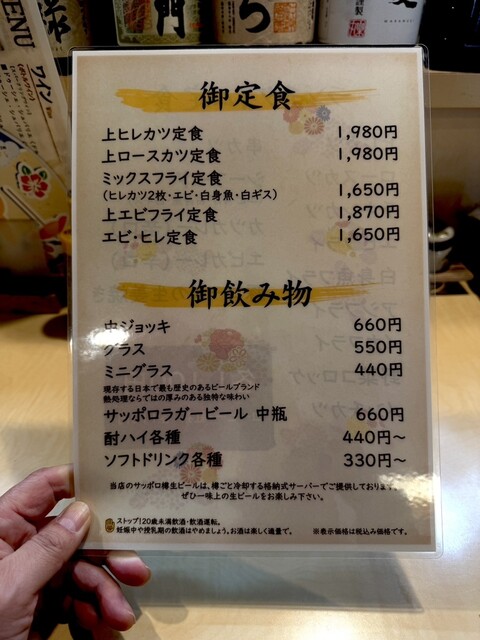 MENU
ワイン
門
御定食
上ヒレカツ定食 1,980円
上ロースカツ定食 1,980円
ミックスフライ定食 1,650円
（ヒレカツ2枚・エビ・白身魚・白ギス）
上エビフライ定食 1,870円
エビ・ヒレ定食 1,650円
御飲み物
中ジョッキ 660円
グラス 550円
ミニグラス 440円
現存する日本で最も歴史のあるビールブランド
熱処理ならではの厚みのある独特な味わい
サッポロラガービール 中瓶 660円
酎ハイ各種 440円～
ソフトドリンク各種 330円～
当店のサッポロ樽生ビールは、樽ごと冷却する格納式サーバーでご提供しております。
ぜひ一味上の生ビールをお楽しみ下さい。
ストップ！20歳未満飲酒・飲酒運転。
妊娠中や授乳期の飲酒はやめましょう。お酒は楽しく適量で。 ※表示価格は税込み価格です。